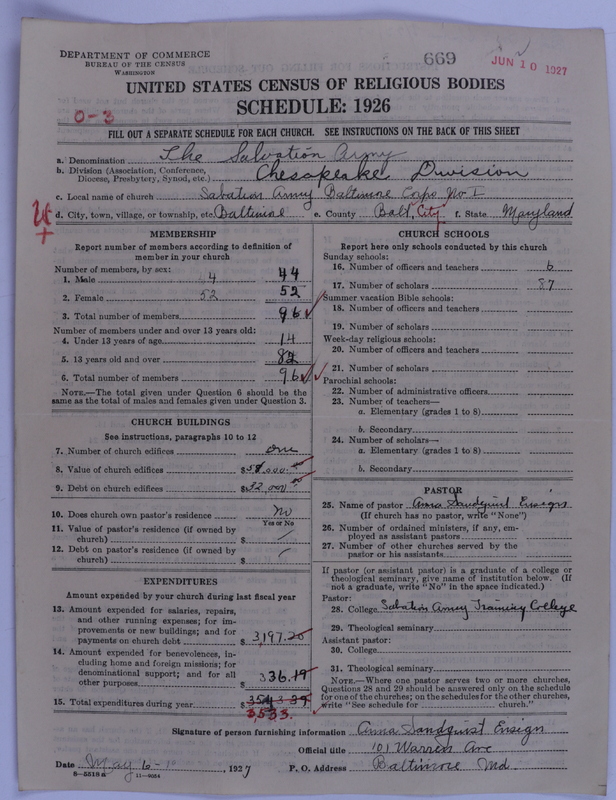 DEPARTMENT OF COMMERCE
BUREAU OF THE CENSUS
WASHINGTON
669
JUN 10 1927
UNITED STATES CENSUS OF RELIGIOUS BODIES
SCHEDULE: 1926
0-3
FILL OUT A SEPARATE SCHEDULE FOR EACH CHURCH. SEE INSTRUCTIONS ON THE BACK OF THIS SHEET
a. Denomination The Salvation Army
b. Division (Association, Conference, Diocese, Presbytery, Synod, etc.) Chesapeake Division
c. Local name of church Salvation Army Baltimore Corps No I
d. City, town, village, or township, etc. Baltimore e. County Balt. City f. State Maryland
MEMBERSHIP
Report number of members according to definition of
member in your church
Number of members, by sex:
1. Male 44 44
2. Female 52 52
3. Total number of members 96
Number of members under and over 13 years old:
4. Under 13 years of age 14
5. 13 years old and over 82
6. Total number of members 96
NOTE.—The total given under Question 6 should be the
same as the total of males and females given under Question 3.
CHURCH BUILDINGS
See instructions, paragraphs 10 to 12
7. Number of church edifices one
8. Value of church edifices $58,000.00
9. Debt on church edifices $32,000.00
10. Does church own pastor's residence No
Yes or No
11. Value of pastor's residence (if owned by
church) $
12. Debt on pastor's residence (if owned by
church) $
EXPENDITURES
Amount expended by your church during last fiscal year
13. Amount expended for salaries, repairs,
and other running expenses; for im-
provements or new buildings; and for
payments on church debt $ 3,197.20
14. Amount expended for benevolences, in-
cluding home and foreign missions; for
denominational support; and for all
other purposes $ 336.19
15. Total expenditures during year $
3533.
CHURCH SCHOOLS
Report here only schools conducted by this church
Sunday schools:
16. Number of officers and teachers 6
17. Number of scholars 87
Summer vacation Bible schools:
18. Number of officers and teachers
19. Number of scholars
Week-day religious schools:
20. Number of officers and teachers
21. Number of scholars
Parochial schools:
22. Number of administrative officers
23. Number of teachers—
a. Elementary (grades 1 to 8)
b. Secondary
24. Number of scholars—
a. Elementary (grades 1 to 8)
b. Secondary
PASTOR
25. Name of pastor Anna Sandquist Ensign
(If church has no pastor, write "None")
26. Number of ordained ministers, if any, em-
ployed as assistant pastors
27. Number of other churches served by the
pastor or his assistants
If pastor (or assistant pastor) is a graduate of a college or
theological seminary, give name of institution below. (If
not a graduate, write "No" in the space indicated.)
Pastor:
28. College Salvation Army Training College
29. Theological seminary
Assistant pastor:
30. College
31. Theological seminary
NOTE.—Where one pastor serves two or more churches,
Questions 28 and 29 should be answered only on the schedule
for one of the churches; on the schedules for the other churches,
write "See schedule for church."
Signature of person furnishing information Anna Sandquist Ensign
Official title 101 Warren Ave
Date May 6-, 1927 P. O. Address Baltimore Md.
8-5518a 11-9054